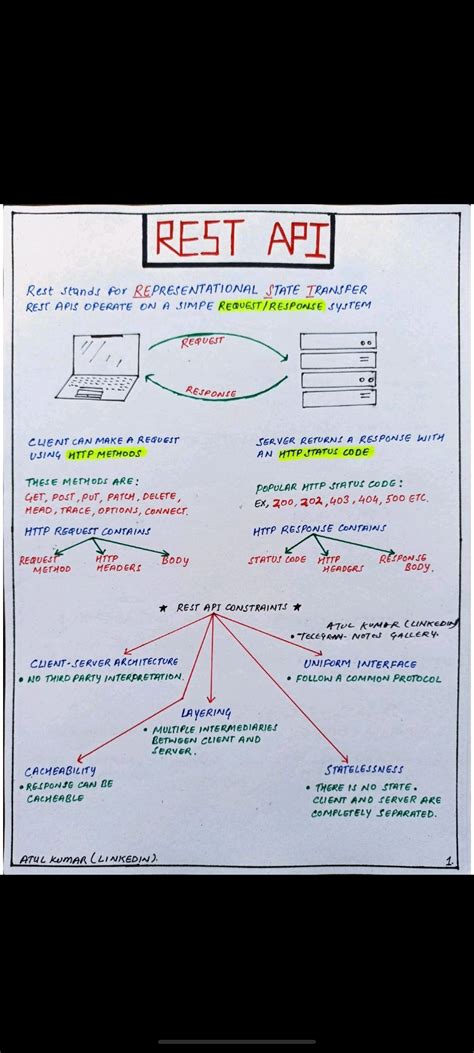 REST API
Rest stands for REPRESENTATIONAL STATE TRANSFER
REST APIS OPERATE ON A SIMPE REQUEST/RESPONSE SYSTEM
REQUEST
RESPONSE
CLIENT CAN MAKE A REQUEST
USING HTTP METHODS
SERVER RETURNS A RESPONSE WITH
AN HTTP STATUS CODE
THESE METHODS ARE:
GET, POST, PUT, PATCH, DELETE,
HEAD, TRACE, OPTIONS, CONNECT.
POPULAR HTTP STATUS CODE:
EX, 200, 202, 403, 404, 500 ETC.
HTTP REQUEST CONTAINS
REQUEST METHOD
HTTP HEADERS
BODY
HTTP RESPONSE CONTAINS
STATUS CODE
HTTP HEADERS
RESPONSE BODY.
★ REST API CONSTRAINTS ★
ATUL KUMAR (LINKEDIN)
• TELEGRAM- NOTES GALLERY
CLIENT-SERVER ARCHITECTURE
• NO THIRD PARTY INTERPRETATION.
UNIFORM INTERFACE
• FOLLOW A COMMON PROTOCOL
LAYERING
• MULTIPLE INTERMEDIARIES
BETWEEN CLIENT AND
SERVER.
CACHEABILITY
• RESPONSE CAN BE
CACHEABLE
STATELESSNESS
• THERE IS NO STATE.
CLIENT AND SERVER ARE
COMPLETELY SEPARATED.
ATUL KUMAR (LINKEDIN).
1.